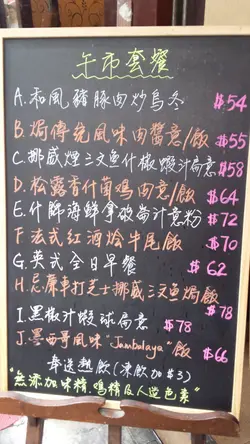 午市套餐
A.和風豬豚肉炒烏冬 $54
B.焗傳統風味肉醬意/飯 $55
C.挪威煙三文魚什椒蝦汁扁意 $58
D.松露香什菌鴨肉意/飯 $64
E.什錦海鮮拿破崙汁意粉 $72
F.法式紅酒燴牛尾飯 $70
G.英式全日早餐 $62
H.忌廉車打芝士挪威三文魚焗飯 $78
I.黑椒汁蝦球扁意 $78
J.墨西哥風味"Jambalaya"飯 $66
奉送熱飲(凍飲加$3)
"無添加味精,鷄精及人造色素"